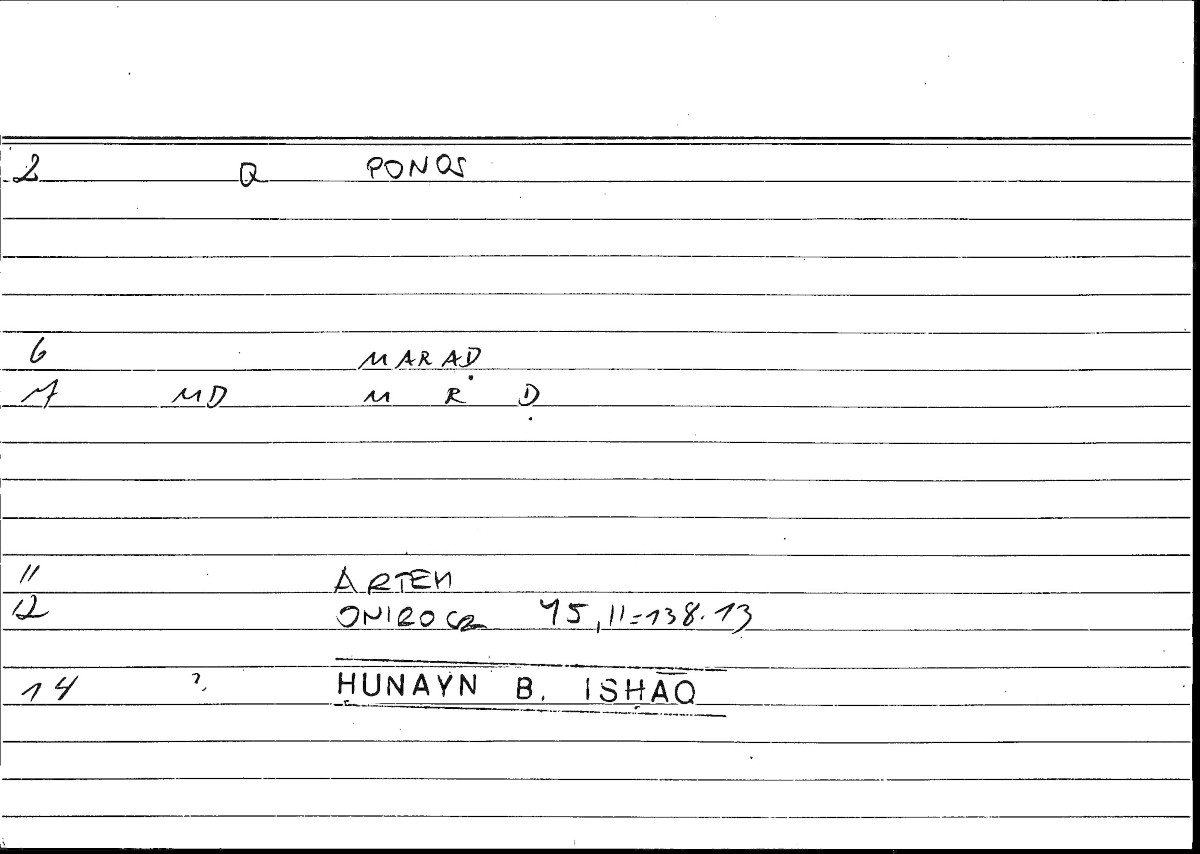 2 Q PONOS
6 MARAḌ
7 MD M R Ḍ
11 ARTEM
12 ONIROCR 45,11=138.13
14 ?. ḤUNAYN B. ISḤĀQ